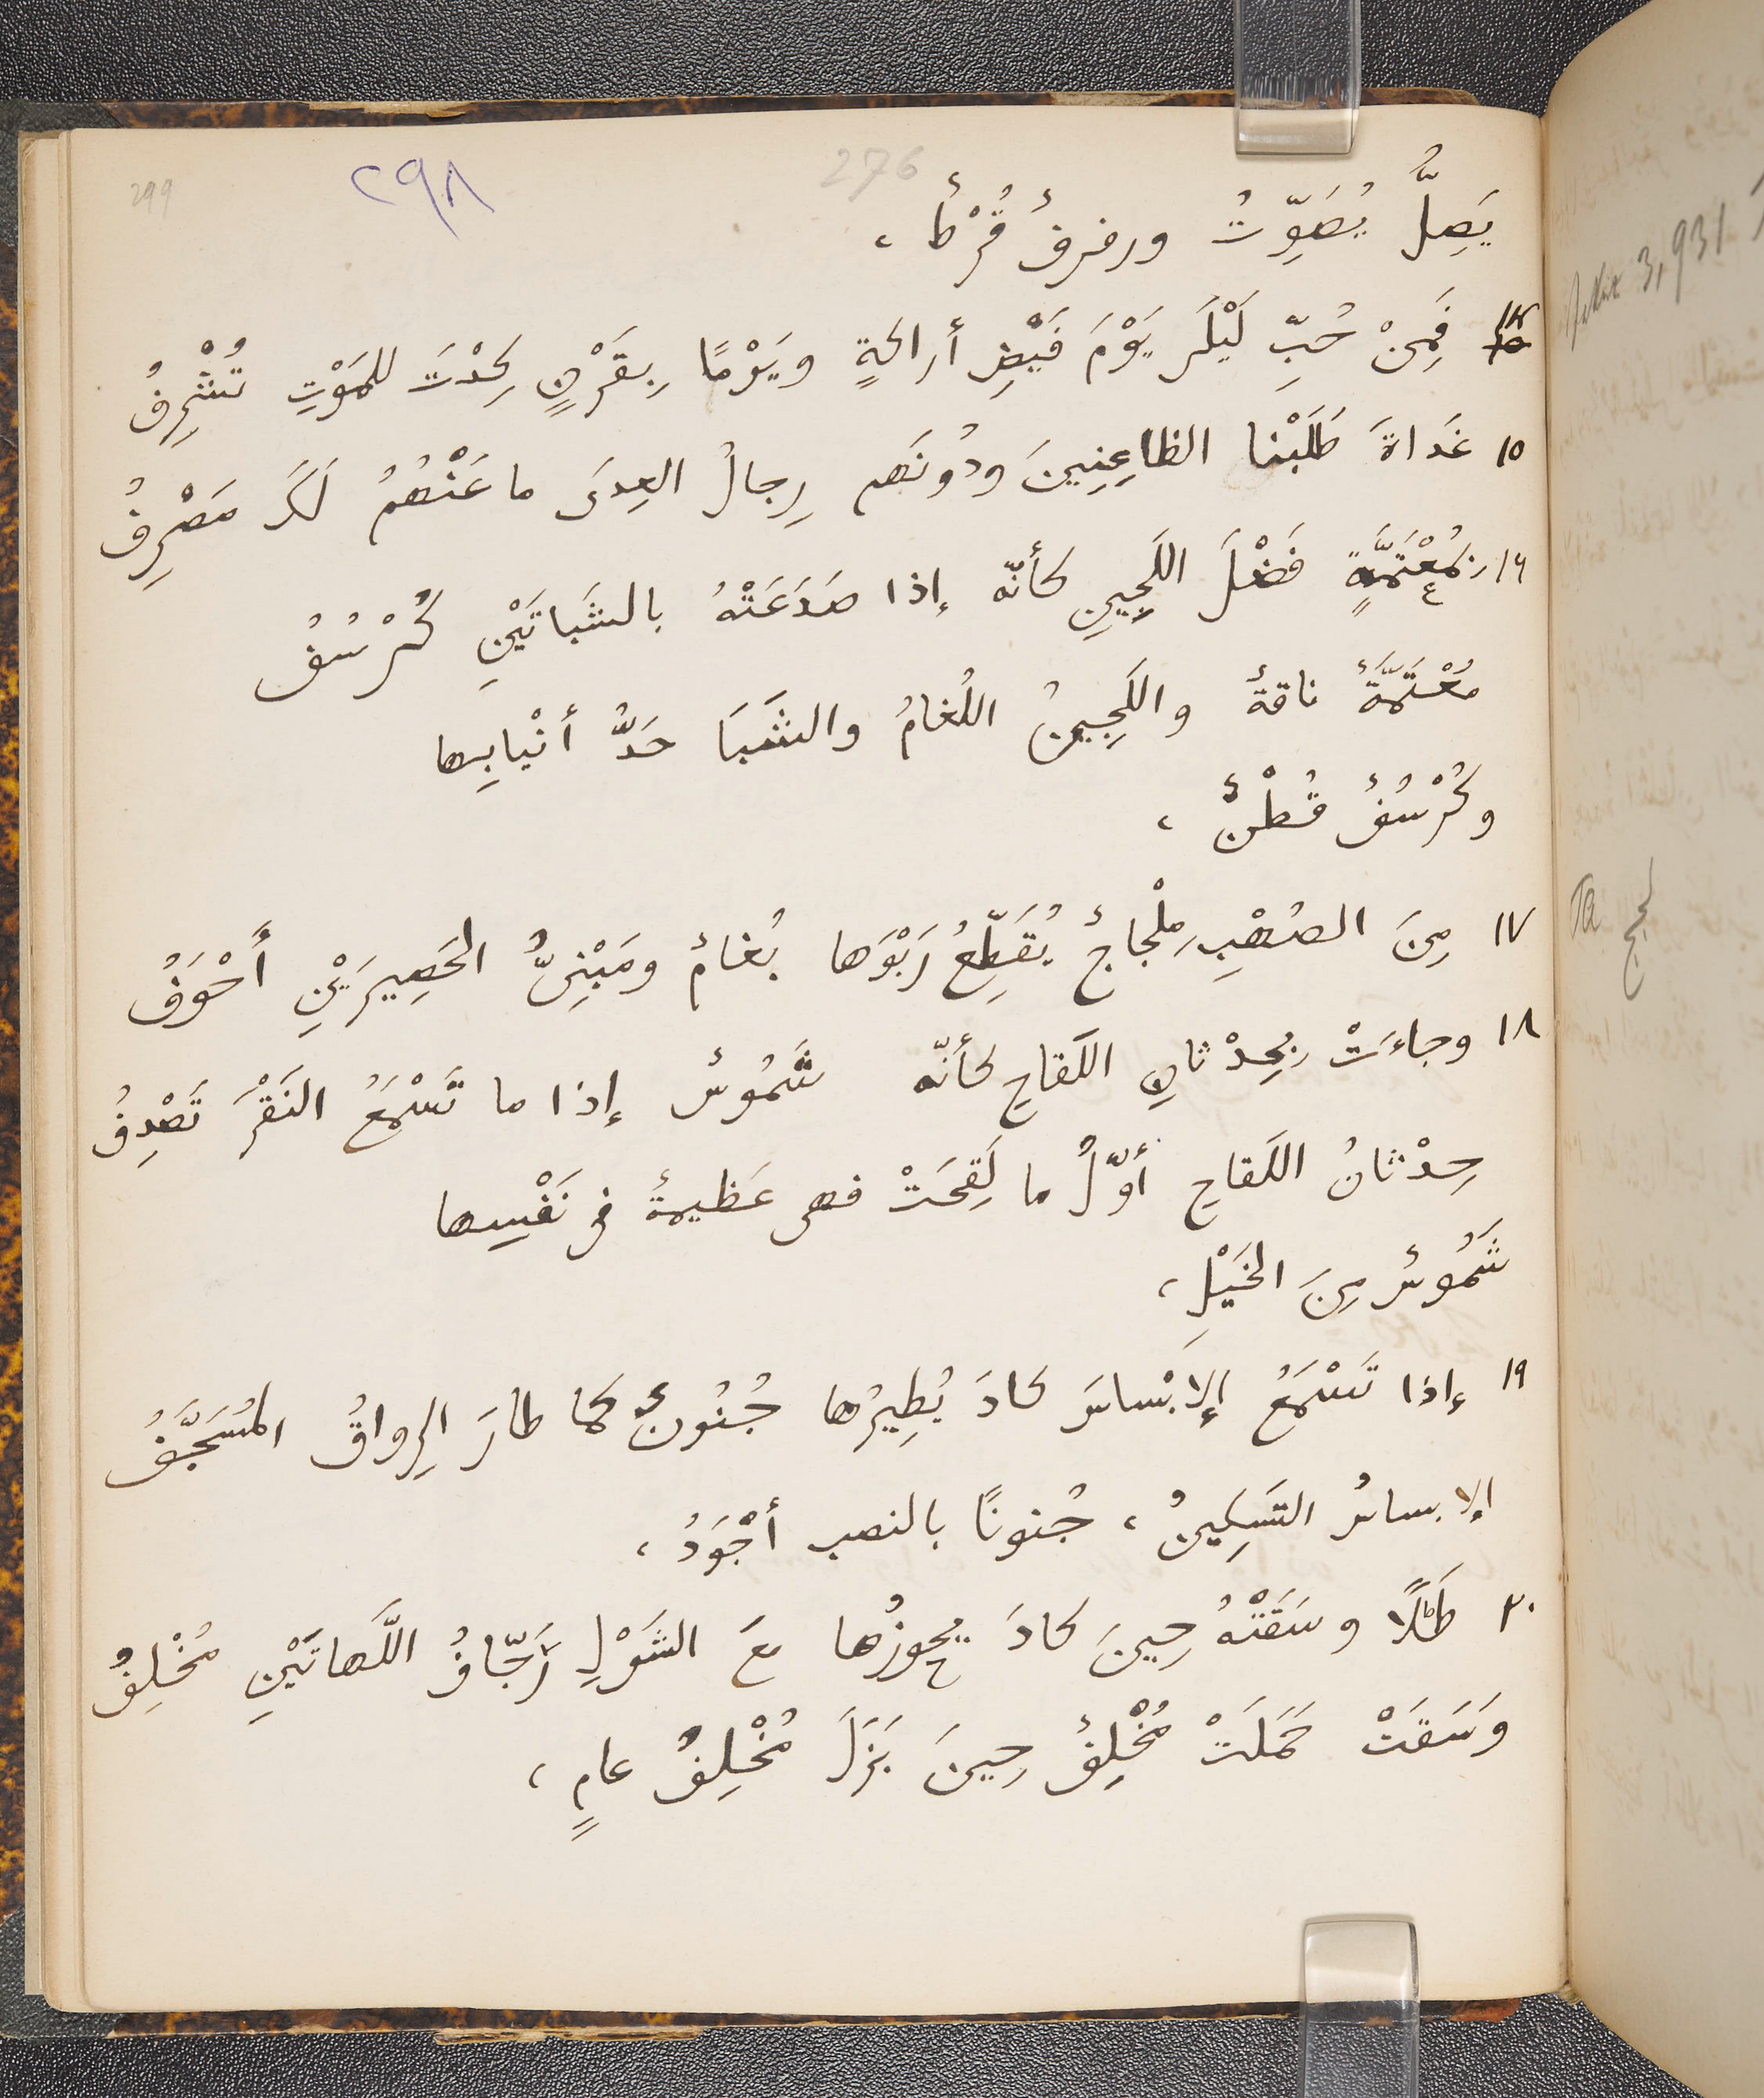 299 ٢٩٨ 276
يَصِلُّ يُصَوِّتُ ورفرفٌ قُرْطٌ ،
١٤ فَمِنْ حُبِّ لَيْلَى يَوْمَ فَيْضِ أراكةٍ ويَوْمًا بِقَرْنٍ كِدْتَ للمَوْتِ تُشْرِفُ
١٥ غَداةَ طَلَبْنا الظاعِنِينَ ودُونَهم رِجالُ العِدَى ما عَنْهُمُ لَكَ مَصْرِفُ
١٦ بِمُعْتَمَّةٍ فَضْلَ اللَجِينِ كأنّه إذا صَدَعَتْهُ بالشَباتَيْنِ كُرْسُفُ
مُعْتَمَّةٌ ناقةٌ واللَجِينُ اللُغامُ والشَبَا حَدُّ أنْيابِها
وكُرْسُفٌ قُطْنٌ ،
١٧ مِنَ الصُهْبِ مِلْجاجٌ يُقَطِّعُ رَبْوَها بُغامٌ ومَبْنِىُّ الحَصِيرَيْنِ أَجْوَفُ
١٨ وجاءَتْ بِحِدْثانِ اللَقاحِ كأنّه شَمُوسٌ إذا ما تَسْمَعُ النَقْرَ تَصْدِفُ
حِدْثانُ اللَقاحِ أوّلُ ما لَقِحَتْ فهى عَظيمةٌ فى نَفْسِها
شَمُوسٌ مِنَ الخَيْلِ ،
١٩ إذا تَسْمَعُ الإبْساسَ كادَ يُطِيرُها جُنُونٌ كما طارَ الرِواقُ المُسَجَّفُ
الإبساسُ التَسكِينُ ، جُنونًا بالنصب أجْوَدُ ،
٢٠ طَلًا وسَقَتْهُ حِينَ كادَ يحوزُها مَعَ الشَوْلِ رَجّافُ اللَّهاتَيْنِ مُخْلِفُ
وَسَقَتْ حَمَلَتْ مُخْلِفٌ حِينَ بَزَلَ مُخْلِفُ عامٍ ،
3,931
Ta
لجج